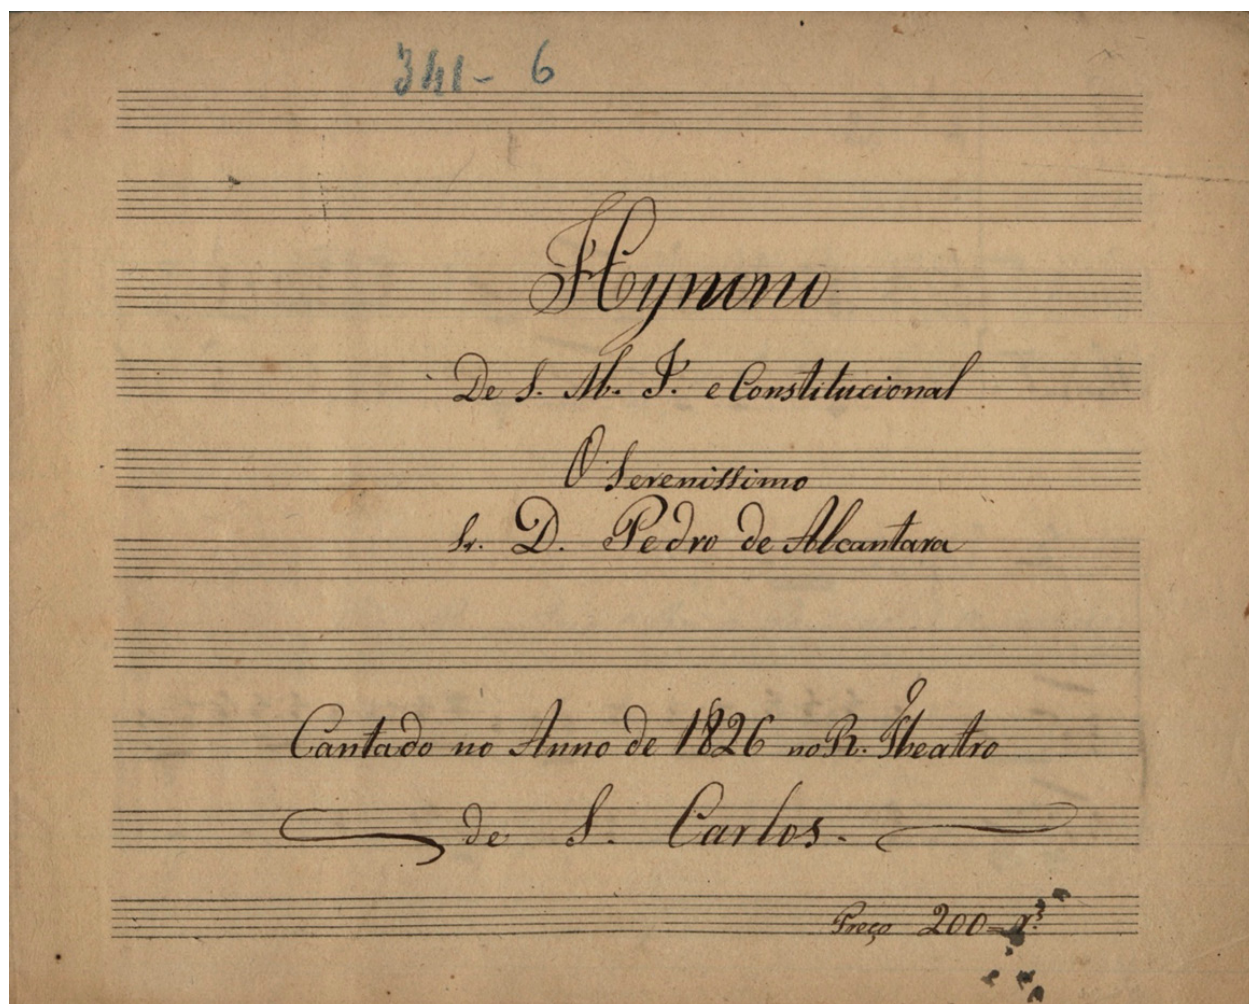 341- 6
Hymno
De S. M. I. e Constitucional
O Serenissimo
Sr. D. Pedro de Alcantara
Cantado no Anno de 1826 no R. Theatro
de S. Carlos.
Preço 200=rs.